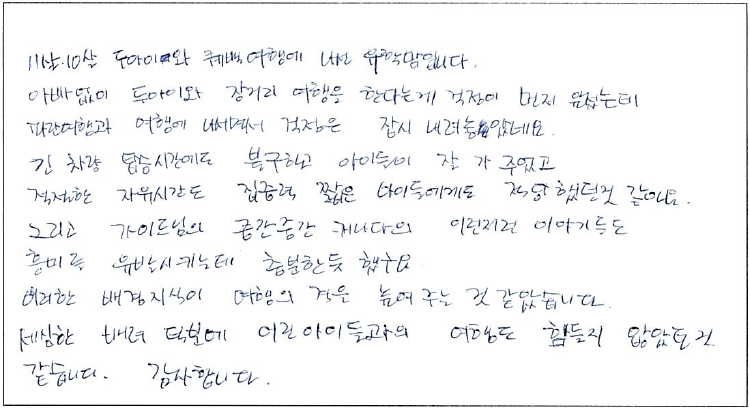 11살.10살 두아이와 퀘백여행에 나선 유학맘입니다.
아빠없이 두아이와 장거리 여행을 한다는게 걱정이 먼저 앞섰는데
파란여행과 여행에 나서면서 걱정은 잠시 내려놓았네요.
긴 차량 탑승시간에도 불구하고 아이들이 잘 가 주었고
적절한 자유시간도 집중력 짧은 아이들에게도 적당했던것 같아요.
그리고 가이드님의 중간중간 캐나다의 이런저런 이야기들도
흥미를 유발시키는데 충분한듯 했구요
이러한 배경지식이 여행의 격을 높여 주는 것 같았습니다.
세심한 배려 덕분에 어린아이들과의 여행도 힘들지 않았던것
같습니다. 감사합니다.